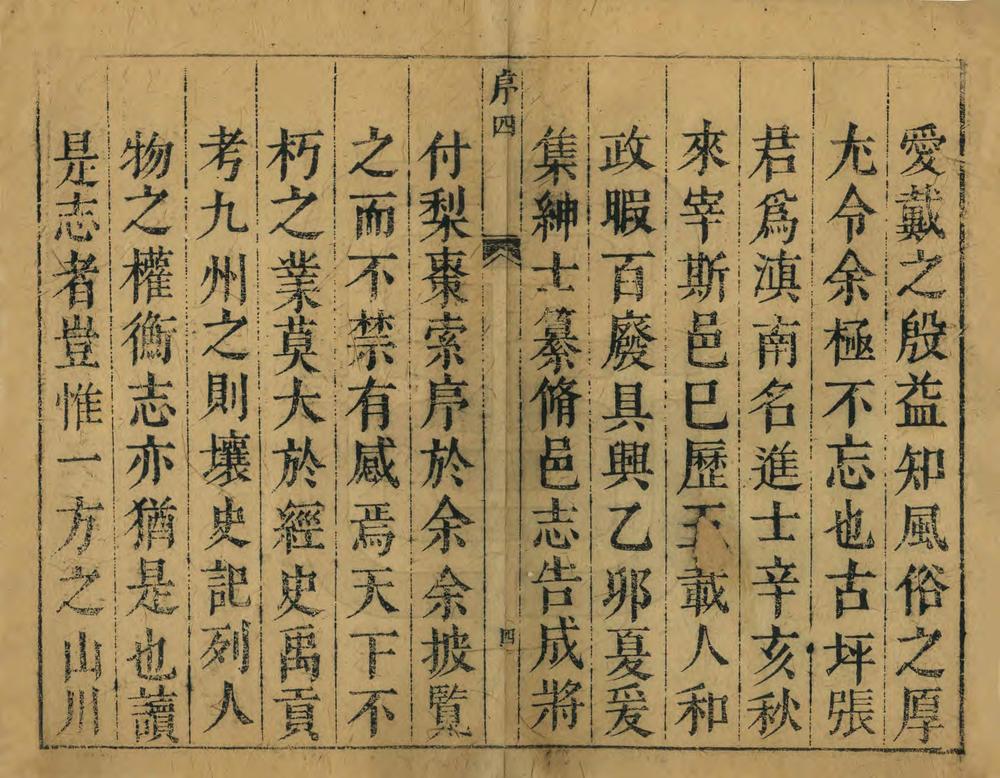 愛戴之殷益知風俗之厚
尤令余極不忘也古坪張
君爲滇南名進士辛亥秋
來宰斯邑巳歷五載人和
政暇百廢具興乙卯夏爰
集紳士纂脩邑志告成將
序四
四
付梨棗索序於余余披覽
之而不禁有感焉天下不
朽之業莫大於經史禹貢
考九州之則壤史記列人
物之權衡志亦猶是也讀
是志者豈惟一方之山川